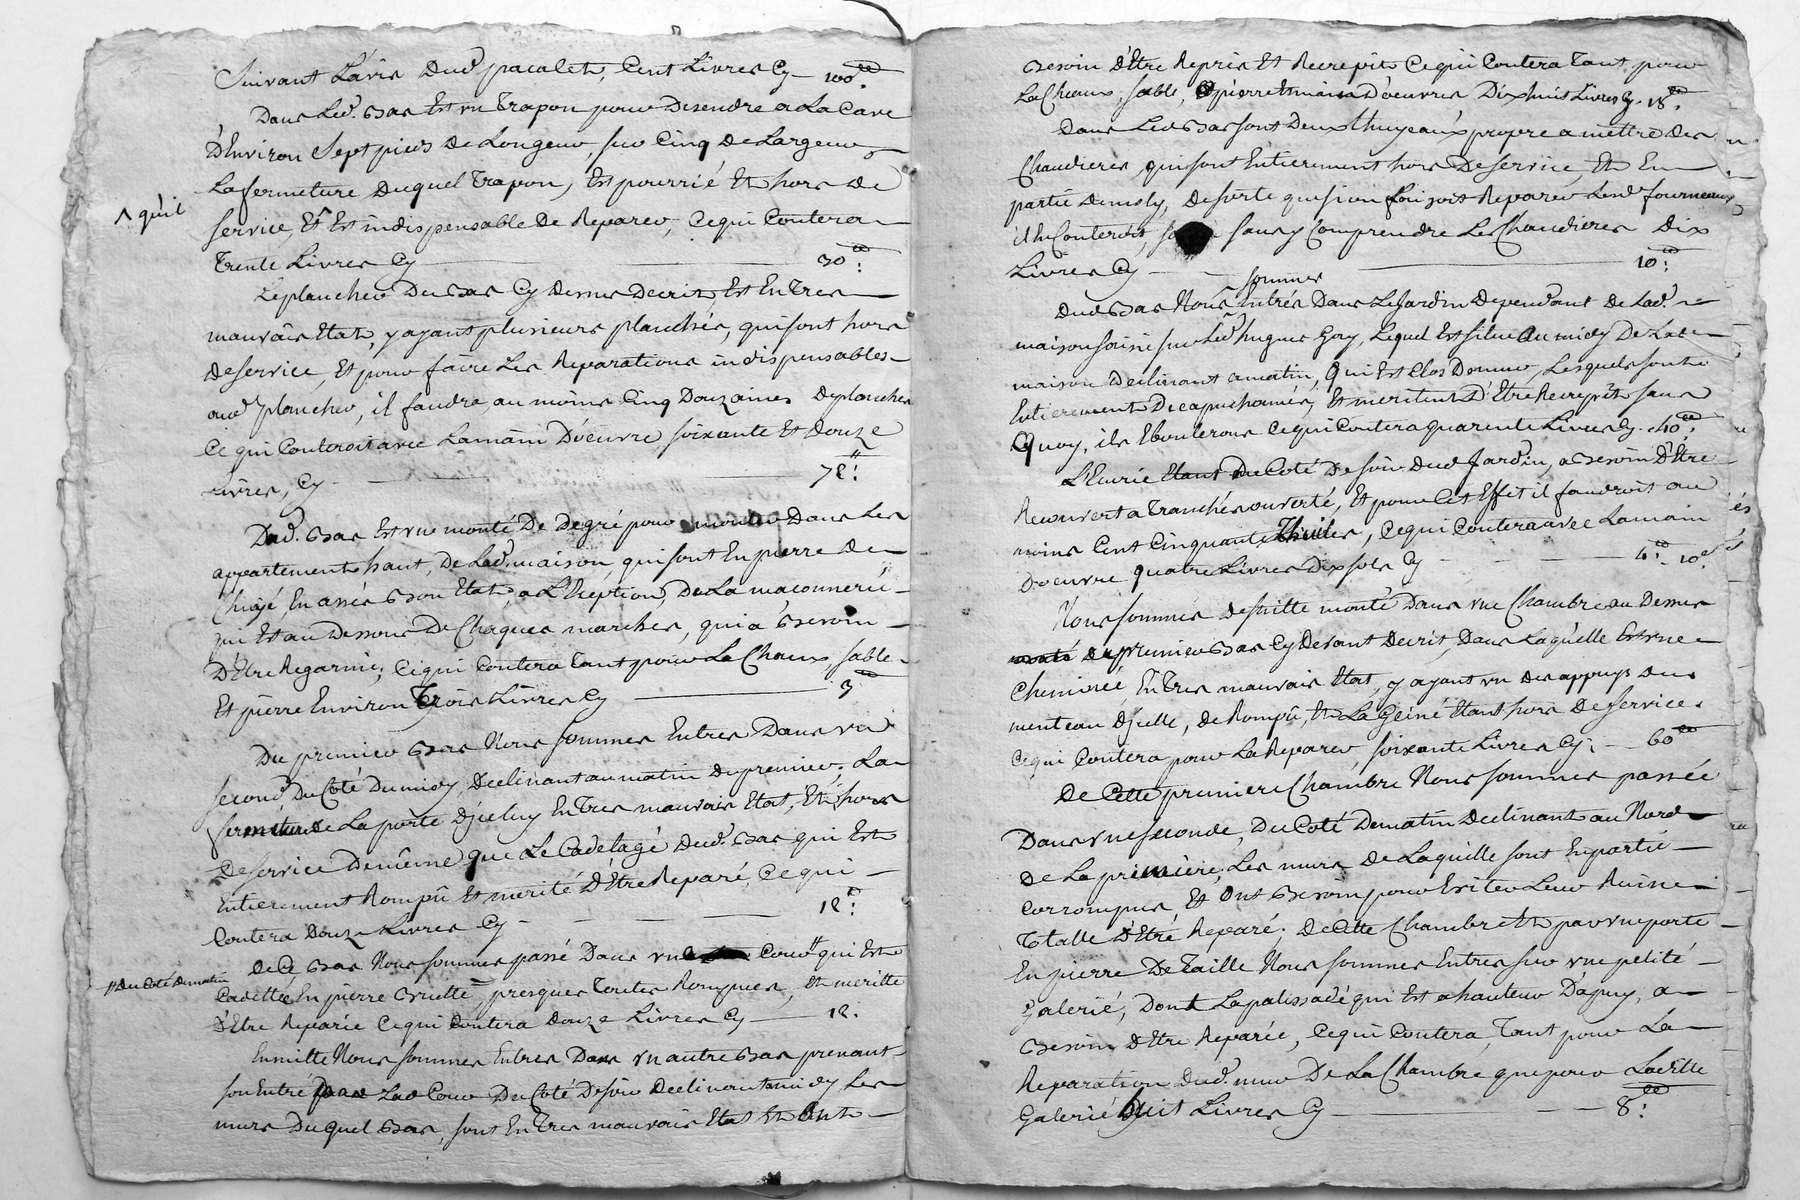 Suivant L'avis Dud. pacalet, Cent Livres Cy — 100ᵗᵗ:
Dans Led. Bas Est vn Trapon pour Desendre a La Cave
D'Environ Sept pieds de Longeur, sur Cinq de Largeur,
La fermeture Duquel Trapon, Est pourrié Et hors de
^ qu'il
service, Et ^ Est indispensable De Reparer, Ce qui Coutera
Trente Livres Cy — 30ᵗᵗ:
Le plancher Du Bas Cy Dessus Decrit, Est En Tres
mauvais Etat, y ayant plusieurs planchés, qui sont hors
de service, Et pour faire Les Reparations indispensables
aud. plancher, il faudra au moins Cinq Douzaines De planches
Ce qui Conteroit avec Lamain D'oeuvre, soixante Et douze
Livres, Cy — 72ᵗᵗ:
Dud. Bas Est vne monté De Degré pour monter Dans Les
appartements haut, de Lad. maison, qui sont En pierre de
Choyé En assés Bon Etat, a L'Exeption, De La maconnerié
qui Est au Dessous De Chaques marches, qui a Besoin
D'Etre Regarnie; Ce qui Coutera Tant pour La Chaux, sable
Et pierre Environ Trois Livres Cy — 3ᵗᵗ
Du premier Bas Nous sommes Entres Dans vn
second, Du Côté Du midy Declinant au matin Du premier; La
fermeture de La porte D'jceluy En Tres mauvais Etat, Et hors
de service De même que Le Cadelagé Dud. Bas qui Est
Entierement Rompû Et merité D'Etre Reparé, Ce qui
Coutera Douze Livres Cy — 12ᵗᵗ:
De Ce Bas Nous sommes passé Dans vne Cour qui Est
# Du Coté Du matin
Cadettée En pierre Bruttè presques Toutes Rompues, Et meritte
D'Etre Reparée Ce qui Coutera Douze Livres Cy — 12.
Ensuitte Nous sommes Entres Dans vn autre Bas prenant
son Entré par Lad. Cour Du Côté De soir Declinant a midy Les
murs Duquel Bas, sont En Tres mauvais Etat Et Ont
Besoin d'Etre Repris Et Recrepit Ce qui Coutera Tant pour
La Chaux, sable, pierre Et main D'oeuvres Dixhuit Livres Cy. 18ᵗᵗ:
Dans Led. Bas sont Deux Thuyeaux propre a mettre des
Chaudieres, qui sont Entierement hors De service, Et En
partie Demoly, De sorte que si on faisoit Reparer Lesd. fourneaux
il En Conteroit, sans y Comprendre Les Chaudieres Dix
Livres Cy — 10ᵗᵗ:
sommes
Dud. Bas Nous Entrés Dans Le Jardin Dependant de Lad.
maison saisie sur Led. hugues Goy, Lequel Est situé au midy De Lad.
maison Declinant a matin, Qui Est Clos De murs, Lesquels sont
Entierement Decapuchonnés, Et meritent D'Etre Recrepit sans
Quoy, ils Ebouleront Ce qui Coutera quarente Livres Cy. 40ᵗᵗ:
L'Ecurie Etant Du Coté De soir Dud. Jardin, a Besoin D'Etre
Recouvert a Tranchés ouverté, Et pour Cet Effet il faudroit au
moins Cent Cinquante Thuiles, Ce qui Coutera avec Lamain
D'oeuvre quatre Livres Dix sols Cy — 4ᵗᵗ: 10ˢ.
Nous sommes De suitte monté Dans vne Chambre au Dessus
du premier Bas Cy Devant Decrit, Dans Laquelle Est vne
Cheminée En Tres mauvais Etat, y ayant vn Des appuys Du
menteau D'jcelle, De Rompû, Et La Geiné Etant hors De service.
Ce qui Coutera pour La Reparer, soixante Livres Cy: — 60ᵗᵗ
De Cette premiere Chambre Nous sommes passée
Dans vne seconde, Du Coté De matin Declinant au Nord
De La premiere, Les murs De Laquelle sont En partié
Corrompus Et Ont Besoin pour Eviter Leur Ruine
Totalle D'Etré Reparé; De Cette Chambre Et par vne porte
En pierre De Taille Nous sommes Entres sur vne petité
Galerié, Dont La palissadé qui Est a hauteur D'apuy, a
Besoin D'Etre Reparée, Ce qui Coutera, Tant pour La
Reparation Dud. mur De La Chambre que pour Laditte
Galerié huit Livres Cy — 8ᵗᵗ: